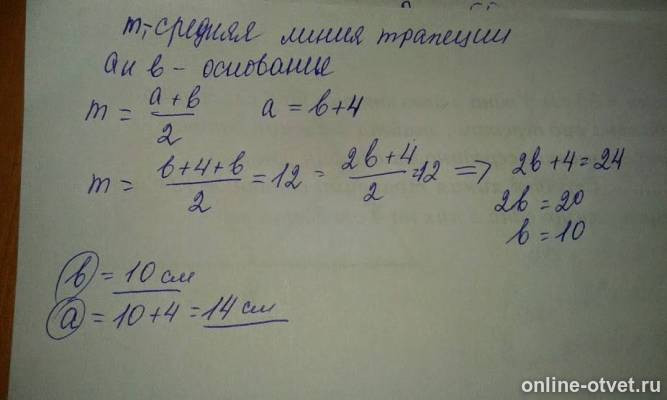 m, - средняя линия трапеции
a и b - основания
m = a+b/2 a = b+4
m = b+4+b/2 = 12 = 2b+4/2 = 12 => 2b+4=24
2b = 20
b = 10
b = 10 см
a = 10+4 = 14 см
online-otvet.ru